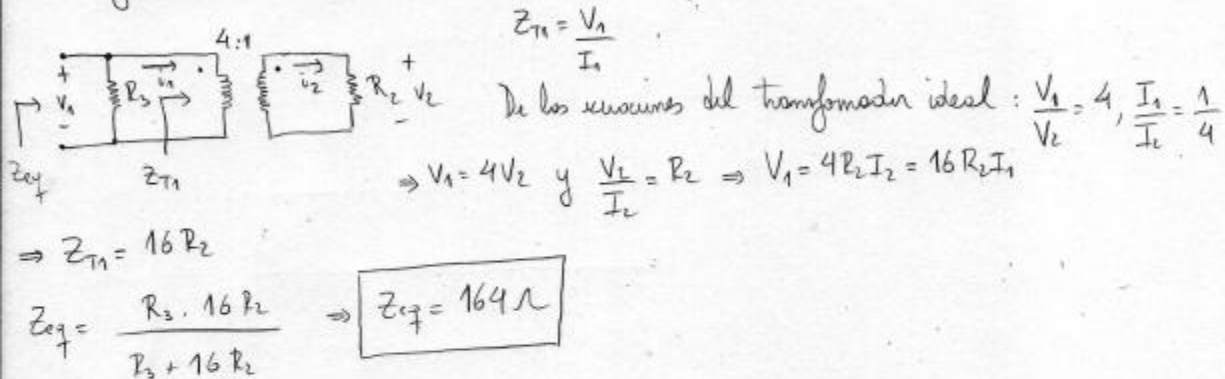 Z_T1 = V₁ / I₁ .
4:1
+ V₁ - R₃ i₁ i₂ R₂ + V₂ -
Zeq Z_T1
De las ecuaciones del transformador ideal : V₁/V₂ = 4, I₁/I₂ = 1/4
⇒ V₁ = 4V₂ y V₂/I₂ = R₂ ⇒ V₁ = 4R₂I₂ = 16R₂I₁
⇒ Z_T1 = 16R₂
Zeq = R₃ . 16R₂ / R₃ + 16R₂ ⇒ Zeq = 164 Ω